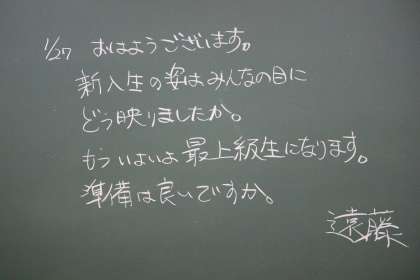 1/27 おはようございます。
新入生の姿はみんなの目に
どう映りましたか。
もういよいよ最上級生になります。
準備は良いですか。
遠藤